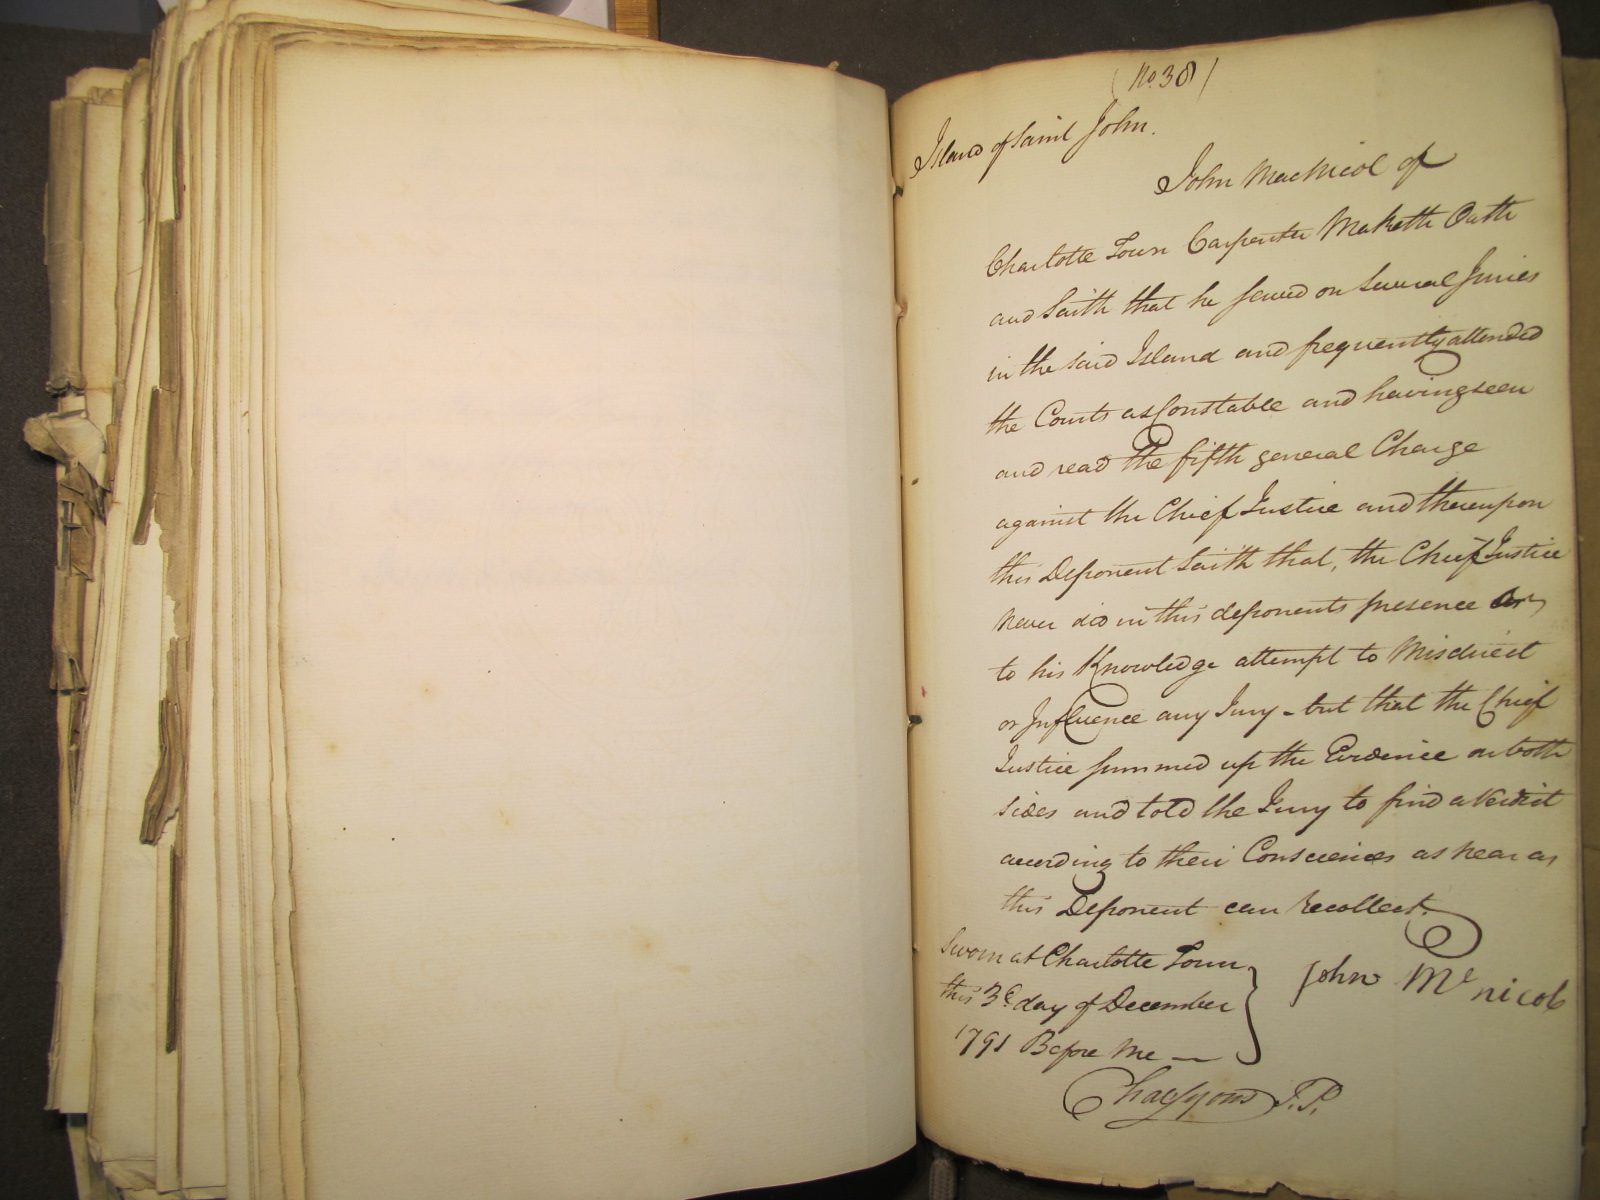 (No. 38)
Island of Saint John.
John MacNicol of
Charlotte Town Carpenter Maketh Oath
and Saith that he served on Several Juries
in the said Island and frequently attended
the Courts as Constable and having seen
and read the fifth general Charge
against the Chief Justice and thereupon
this Deponent Saith that, the Chief Justice
never did in this deponents presence or
to his Knowledge attempt to Misdirect
or Influence any Jury - but that the Chief
Justice summed up the Evidence on both
sides and told the Jury to find a Verdict
according to their Consciences as near as
this Deponent can Recollect.
Sworn at Charlotte Town
this 3d day of December
1791 Before Me —
John Mc nicol
J.P.